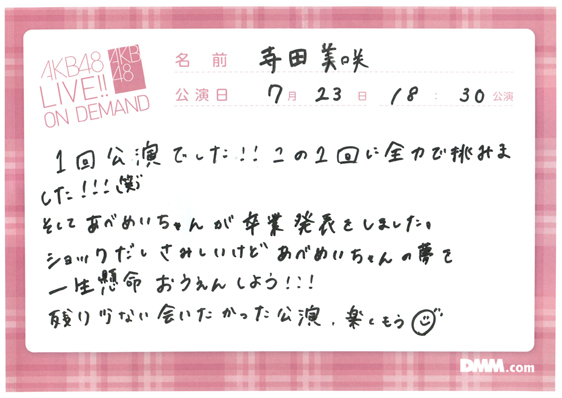 AKB48
LIVE!!
ON DEMAND
AKB
48
名前 寺田美咲
公演日 7月23日 18:30公演
1回公演でした!! この1回に全力で挑みま
した!!!(笑)
そしてあべめいちゃんが卒業発表をしました。
ショックだしさみしいけどあべめいちゃんの夢を
一生懸命おうえんしよう!!!
残り少ない会いたかった公演、楽しもう
DMM.com